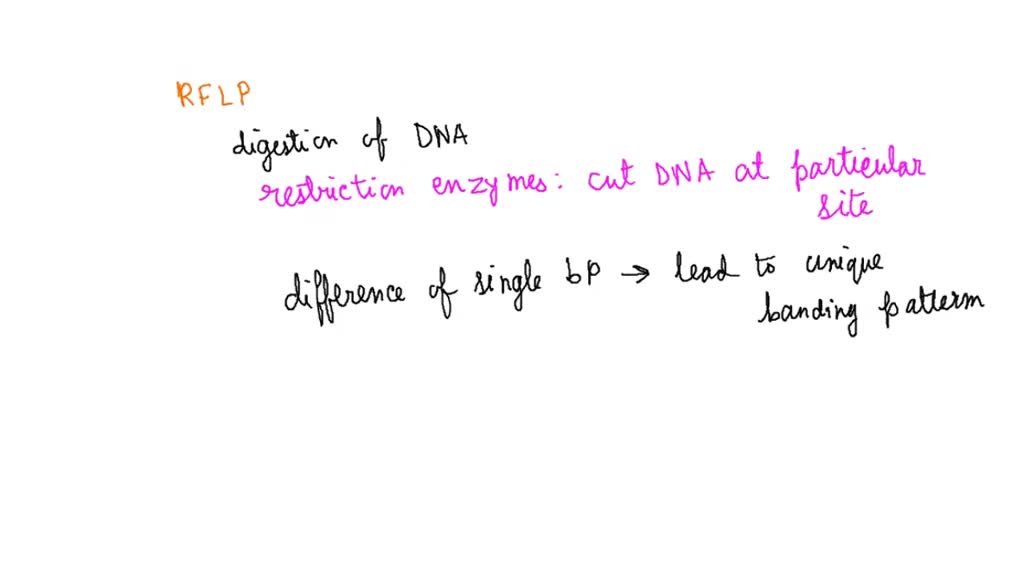 RFLP
digestion of DNA
restriction enzymes: cut DNA at particular
site
difference of single bp → lead to unique
banding pattern